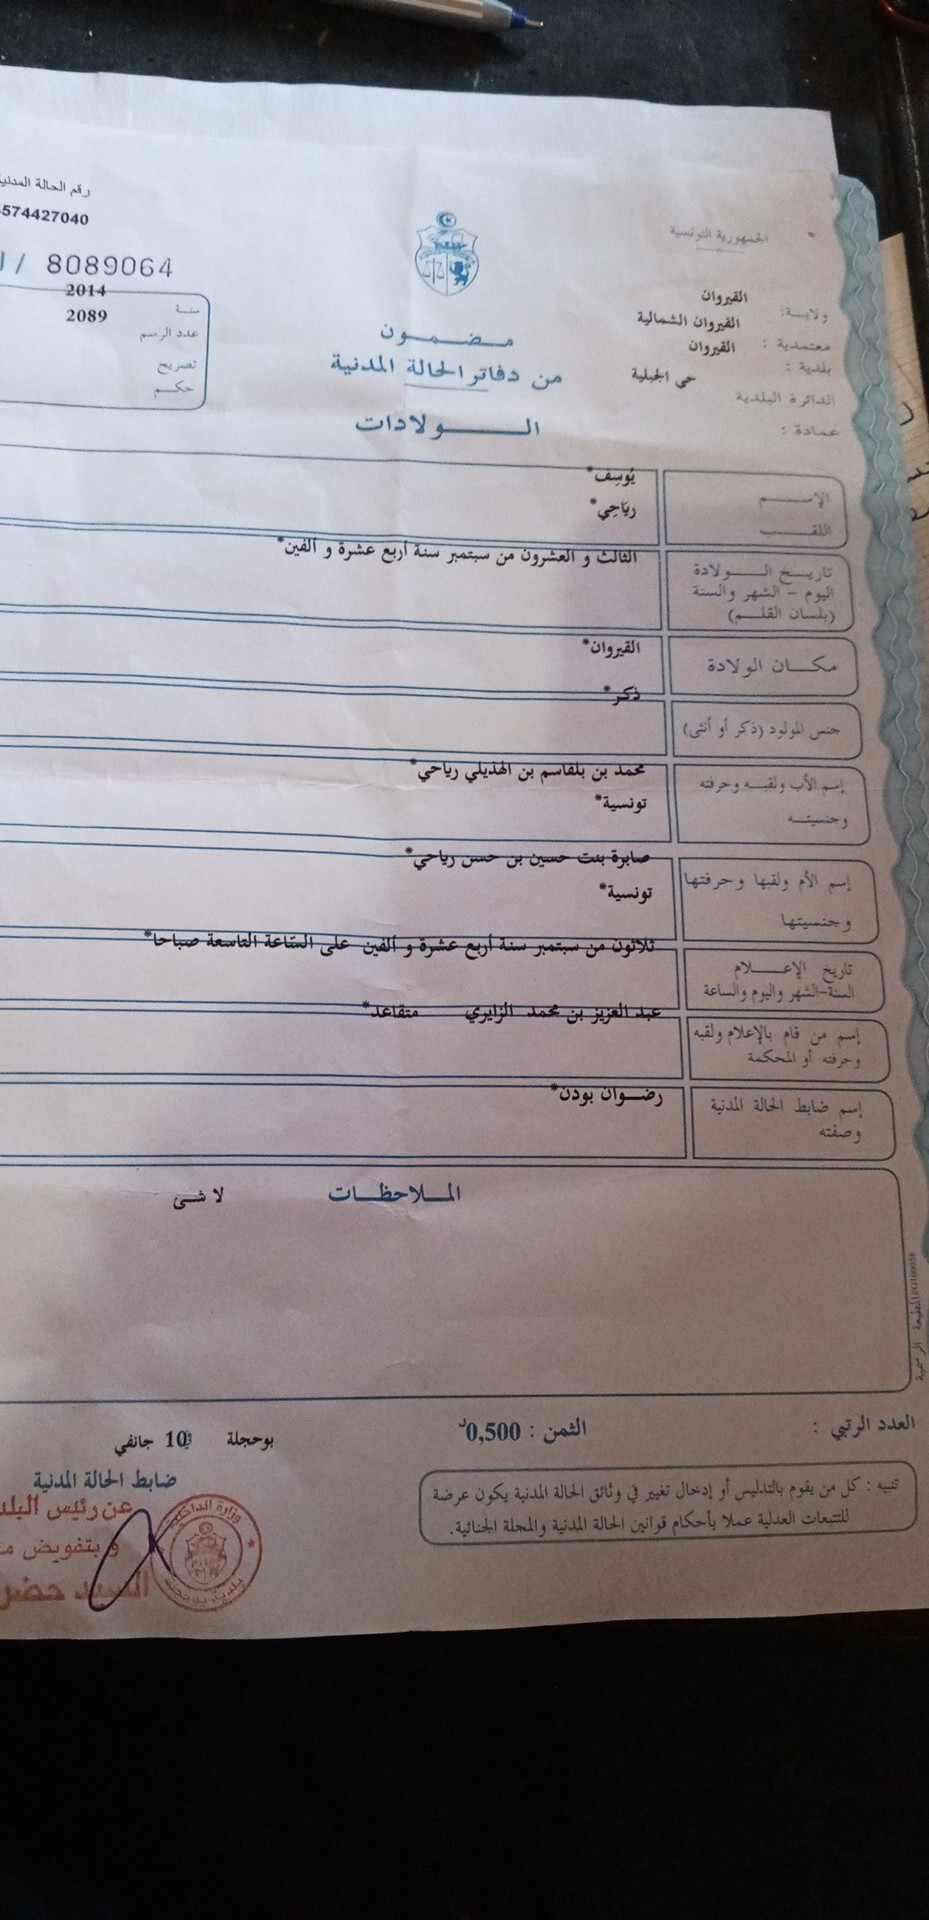 الجمهورية التونسية
رقم الحالة المدنية
574427040
8089064 /
ولاية: القيروان
معتمدية : القيروان الشمالية
بلدية : القيروان
الدائرة البلدية حي الجبلية
عمادة :
سنة 2014
عدد الرسم 2089
تصريح
حكم
مضمون
من دفاتر الحالة المدنية
الولادات
الإسم يُوسِف*
اللقب رِيَاحِي*
تاريخ الولادة الثالث و العشرون من سبتمبر سنة أربع عشرة و ألفين*
اليوم - الشهر والسنة
(بلسان القلم)
مكان الولادة القيروان*
جنس المولود (ذكر أو أنثى) ذكر*
إسم الأب ولقبه وحرفته محمد بن بلقاسم بن الهذيلي رياحي*
وجنسيته تونسية*
إسم الأم ولقبها وحرفتها صابرة بنت حسين بن حسن رياحي*
وجنسيتها تونسية*
تاريخ الإعلام ثلاثون من سبتمبر سنة أربع عشرة و ألفين على السّاعة التاسعة صباحا*
السنة-الشهر واليوم والساعة
إسم من قام بالإعلام ولقبه عبد العزيز بن محمد الزايري متقاعد*
وحرفته أو المحكمة
إسم ضابط الحالة المدنية رضوان بودن*
وصفته
الملاحظات لا شئ
المطبعة الرسمية
العدد الرتبي :
الثمن : 0,500د
بوحجلة 10 جانفي
تنبيه : كل من يقوم بالتدليس أو إدخال تغيير في وثائق الحالة المدنية يكون عرضة
للتتبعات العدلية عملا بأحكام قوانين الحالة المدنية والمجلة الجنائية.
ضابط الحالة المدنية
عن رئيس
و بتفويض
السيد
وزارة الداخلية